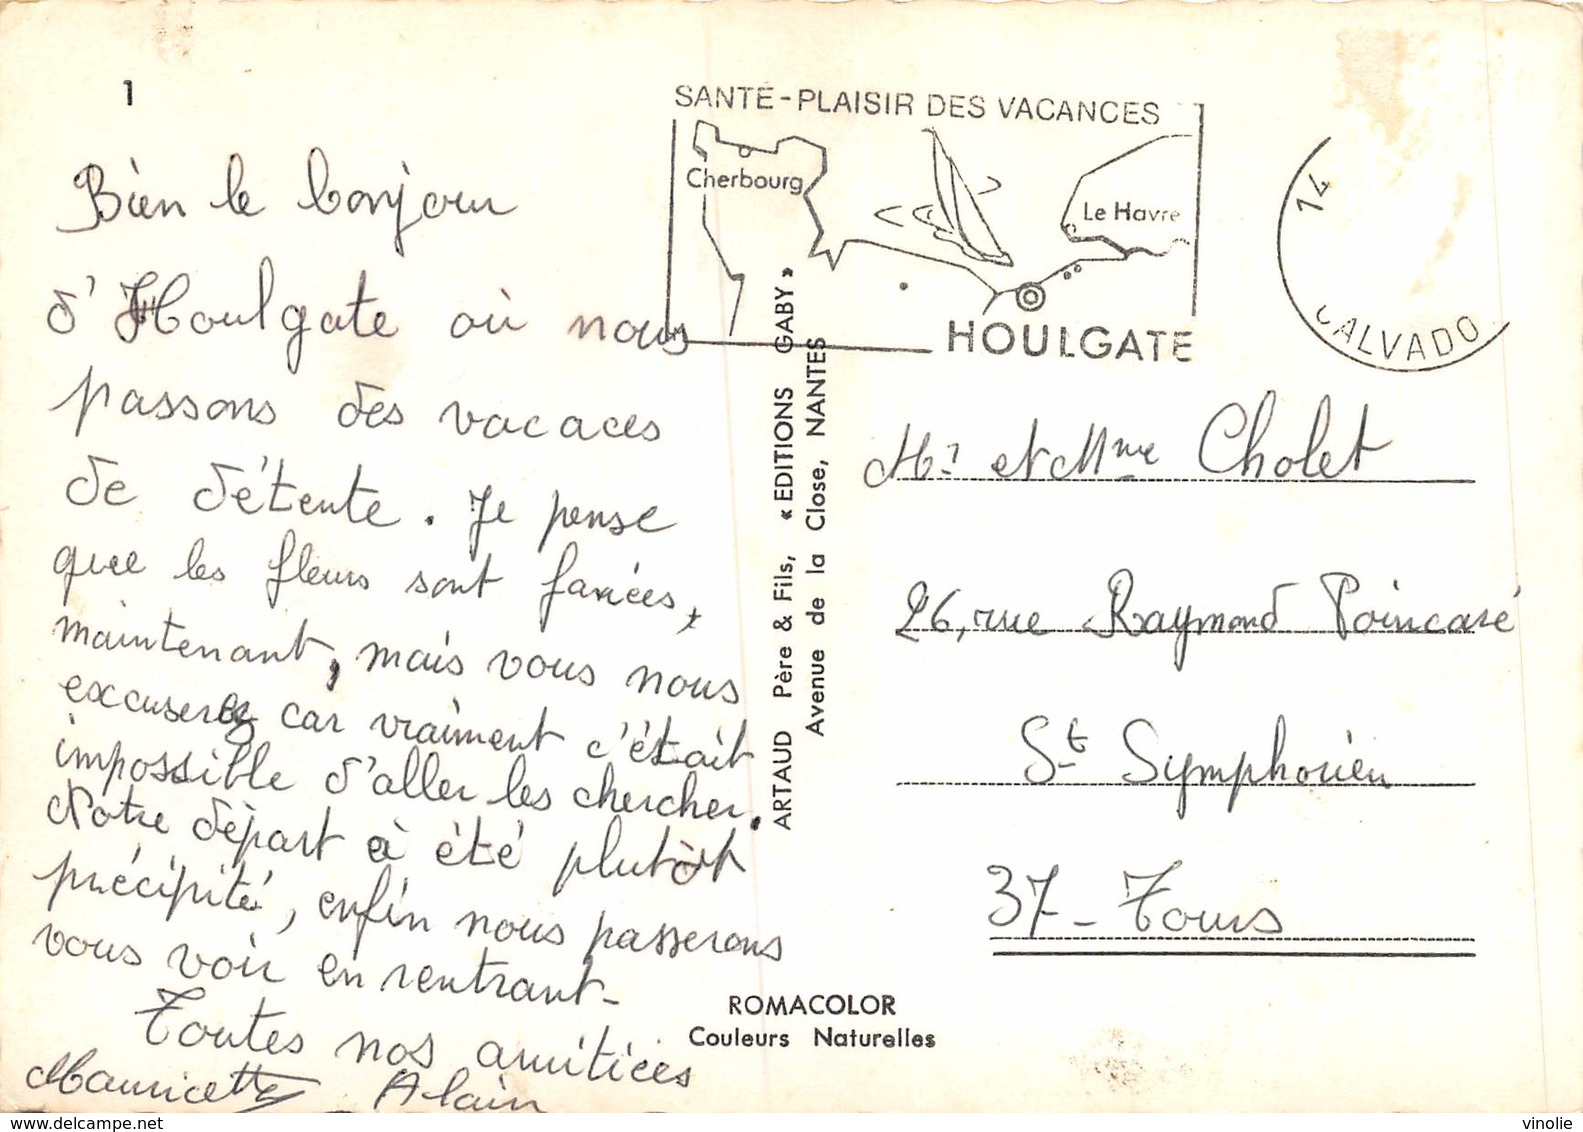 1
Bien le bonjour
d'Houlgate où nous
passons des vacaces
de détente. Je pense
que les fleurs sont fanées,
maintenant, mais vous nous
excuserez car vraiment c'était
impossible d'aller les chercher.
Notre départ à été plutôt
précipité, enfin nous passerons
vous voir en rentrant-
Toutes nos amitiées
Mauricette Alain
SANTÉ-PLAISIR DES VACANCES
Cherbourg
Le Havre
HOULGATE
14
CALVADO
ARTAUD Père & Fils, « EDITIONS GABY »
Avenue de la Close, NANTES
Mr et Mme Cholet
26, rue Raymond Poincaré
St Symphorien
37- Tours
ROMACOLOR
Couleurs Naturelles
www.delcampe.net
vinolie